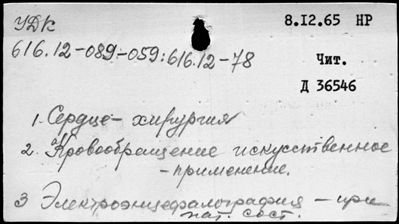 УДК
8.IX.65 НР
616.12-089-059:616.12-78
Чит.
Д 36546
1. Сердце - хирургия
2. Кровообращение искусственное
- применение.
3 Электроэнцефалография - при
пат. сост.